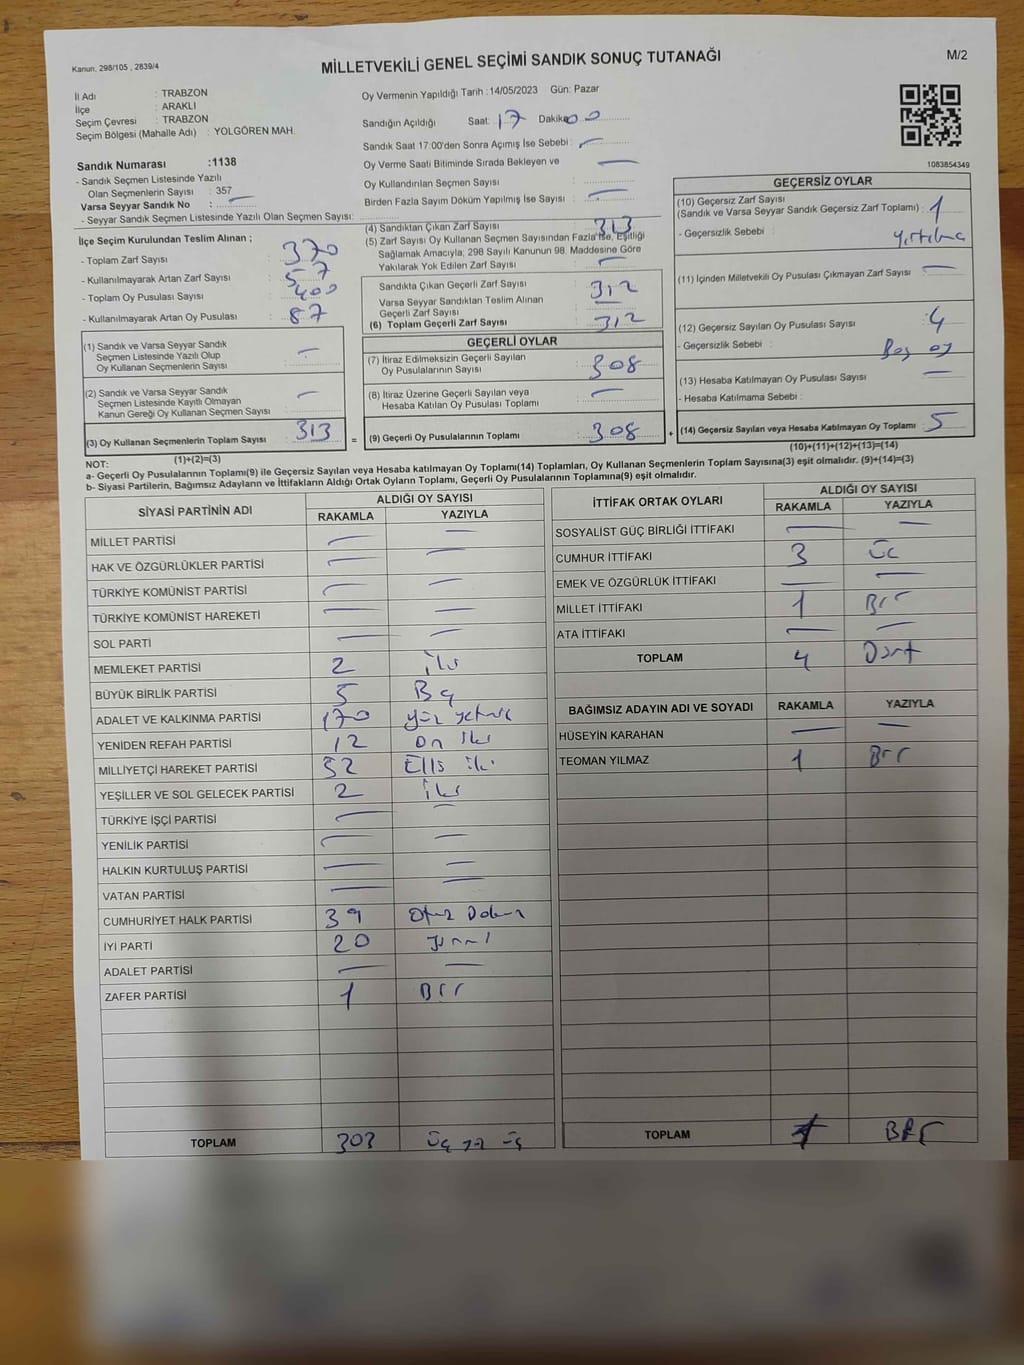 Kanun, 298/105 , 2839/4
MİLLETVEKİLİ GENEL SEÇİMİ SANDIK SONUÇ TUTANAĞI
M/2
İl Adı : TRABZON
İlçe : ARAKLI
Seçim Çevresi : TRABZON
Seçim Bölgesi (Mahalle Adı) : YOLGÖREN MAH.
Sandık Numarası :1138
- Sandık Seçmen Listesinde Yazılı
Olan Seçmenlerin Sayısı : 357
Varsa Seyyar Sandık No : —
- Seyyar Sandık Seçmen Listesinde Yazılı Olan Seçmen Sayısı:
Oy Vermenin Yapıldığı Tarih :14/05/2023 Gün: Pazar
Sandığın Açıldığı Saat: 17 Dakika 00
Sandık Saat 17:00'den Sonra Açımış İse Sebebi : —
Oy Verme Saati Bitiminde Sırada Bekleyen ve —
Oy Kullandırılan Seçmen Sayısı :
Birden Fazla Sayım Döküm Yapılmış İse Sayısı : —
1083854349
İlçe Seçim Kurulundan Teslim Alınan ;
- Toplam Zarf Sayısı : 370
- Kullanılmayarak Artan Zarf Sayısı : 57
- Toplam Oy Pusulası Sayısı : 400
- Kullanılmayarak Artan Oy Pusulası : 87
(1) Sandık ve Varsa Seyyar Sandık
Seçmen Listesinde Yazılı Olup
Oy Kullanan Seçmenlerin Sayısı : —
(2) Sandık ve Varsa Seyyar Sandık
Seçmen Listesinde Kayıtlı Olmayan
Kanun Gereği Oy Kullanan Seçmen Sayısı : —
(3) Oy Kullanan Seçmenlerin Toplam Sayısı : 313
(1)+(2)=(3)
(4) Sandıktan Çıkan Zarf Sayısı : 313
(5) Zarf Sayısı Oy Kullanan Seçmen Sayısından Fazla İse, Eşitliği
Sağlamak Amacıyla, 298 Sayılı Kanunun 98. Maddesine Göre
Yakılarak Yok Edilen Zarf Sayısı : —
Sandıkta Çıkan Geçerli Zarf Sayısı : 312
Varsa Seyyar Sandıktan Teslim Alınan
Geçerli Zarf Sayısı : —
(6) Toplam Geçerli Zarf Sayısı : 312
GEÇERLİ OYLAR
(7) İtiraz Edilmeksizin Geçerli Sayılan
Oy Pusulalarının Sayısı : 308
(8) İtiraz Üzerine Geçerli Sayılan veya
Hesaba Katılan Oy Pusulası Toplamı : —
= (9) Geçerli Oy Pusulalarının Toplamı : 308 +
GEÇERSİZ OYLAR
(10) Geçersiz Zarf Sayısı
(Sandık ve Varsa Seyyar Sandık Geçersiz Zarf Toplamı) : 1
- Geçersizlik Sebebi : yırtılma
(11) İçinden Milletvekili Oy Pusulası Çıkmayan Zarf Sayısı : —
(12) Geçersiz Sayılan Oy Pusulası Sayısı : 4
- Geçersizlik Sebebi : Boş oy
(13) Hesaba Katılmayan Oy Pusulası Sayısı : —
- Hesaba Katılmama Sebebi :
(14) Geçersiz Sayılan veya Hesaba Katılmayan Oy Toplamı : 5
(10)+(11)+(12)+(13)=(14)
NOT:
a- Geçerli Oy Pusulalarının Toplamı(9) ile Geçersiz Sayılan veya Hesaba katılmayan Oy Toplamı(14) Toplamları, Oy Kullanan Seçmenlerin Toplam Sayısına(3) eşit olmalıdır. (9)+(14)=(3)
b- Siyasi Partilerin, Bağımsız Adayların ve İttifakların Aldığı Ortak Oyların Toplamı, Geçerli Oy Pusulalarının Toplamına(9) eşit olmalıdır.
SİYASİ PARTİNİN ADI ALDIĞI OY SAYISI
RAKAMLA YAZIYLA
MİLLET PARTİSİ — —
HAK VE ÖZGÜRLÜKLER PARTİSİ — —
TÜRKİYE KOMÜNİST PARTİSİ — —
TÜRKİYE KOMÜNİST HAREKETİ — —
SOL PARTİ — —
MEMLEKET PARTİSİ 2 iki
BÜYÜK BİRLİK PARTİSİ 5 Beş
ADALET VE KALKINMA PARTİSİ 170 yüz yetmiş
YENİDEN REFAH PARTİSİ 12 on iki
MİLLİYETÇİ HAREKET PARTİSİ 52 Elli iki
YEŞİLLER VE SOL GELECEK PARTİSİ 2 iki
TÜRKİYE İŞÇİ PARTİSİ — —
YENİLİK PARTİSİ — —
HALKIN KURTULUŞ PARTİSİ — —
VATAN PARTİSİ — —
CUMHURİYET HALK PARTİSİ 39 Otuz Dokuz
İYİ PARTİ 20 yirmi
ADALET PARTİSİ — —
ZAFER PARTİSİ 1 Bir
TOPLAM 303 üç yz üç
İTTİFAK ORTAK OYLARI ALDIĞI OY SAYISI
RAKAMLA YAZIYLA
SOSYALİST GÜÇ BİRLİĞİ İTTİFAKI — —
CUMHUR İTTİFAKI 3 üç
EMEK VE ÖZGÜRLÜK İTTİFAKI — —
MİLLET İTTİFAKI 1 Bir
ATA İTTİFAKI — —
TOPLAM 4 Dört
BAĞIMSIZ ADAYIN ADI VE SOYADI RAKAMLA YAZIYLA
HÜSEYİN KARAHAN — —
TEOMAN YILMAZ 1 Bir
TOPLAM 1 BİR